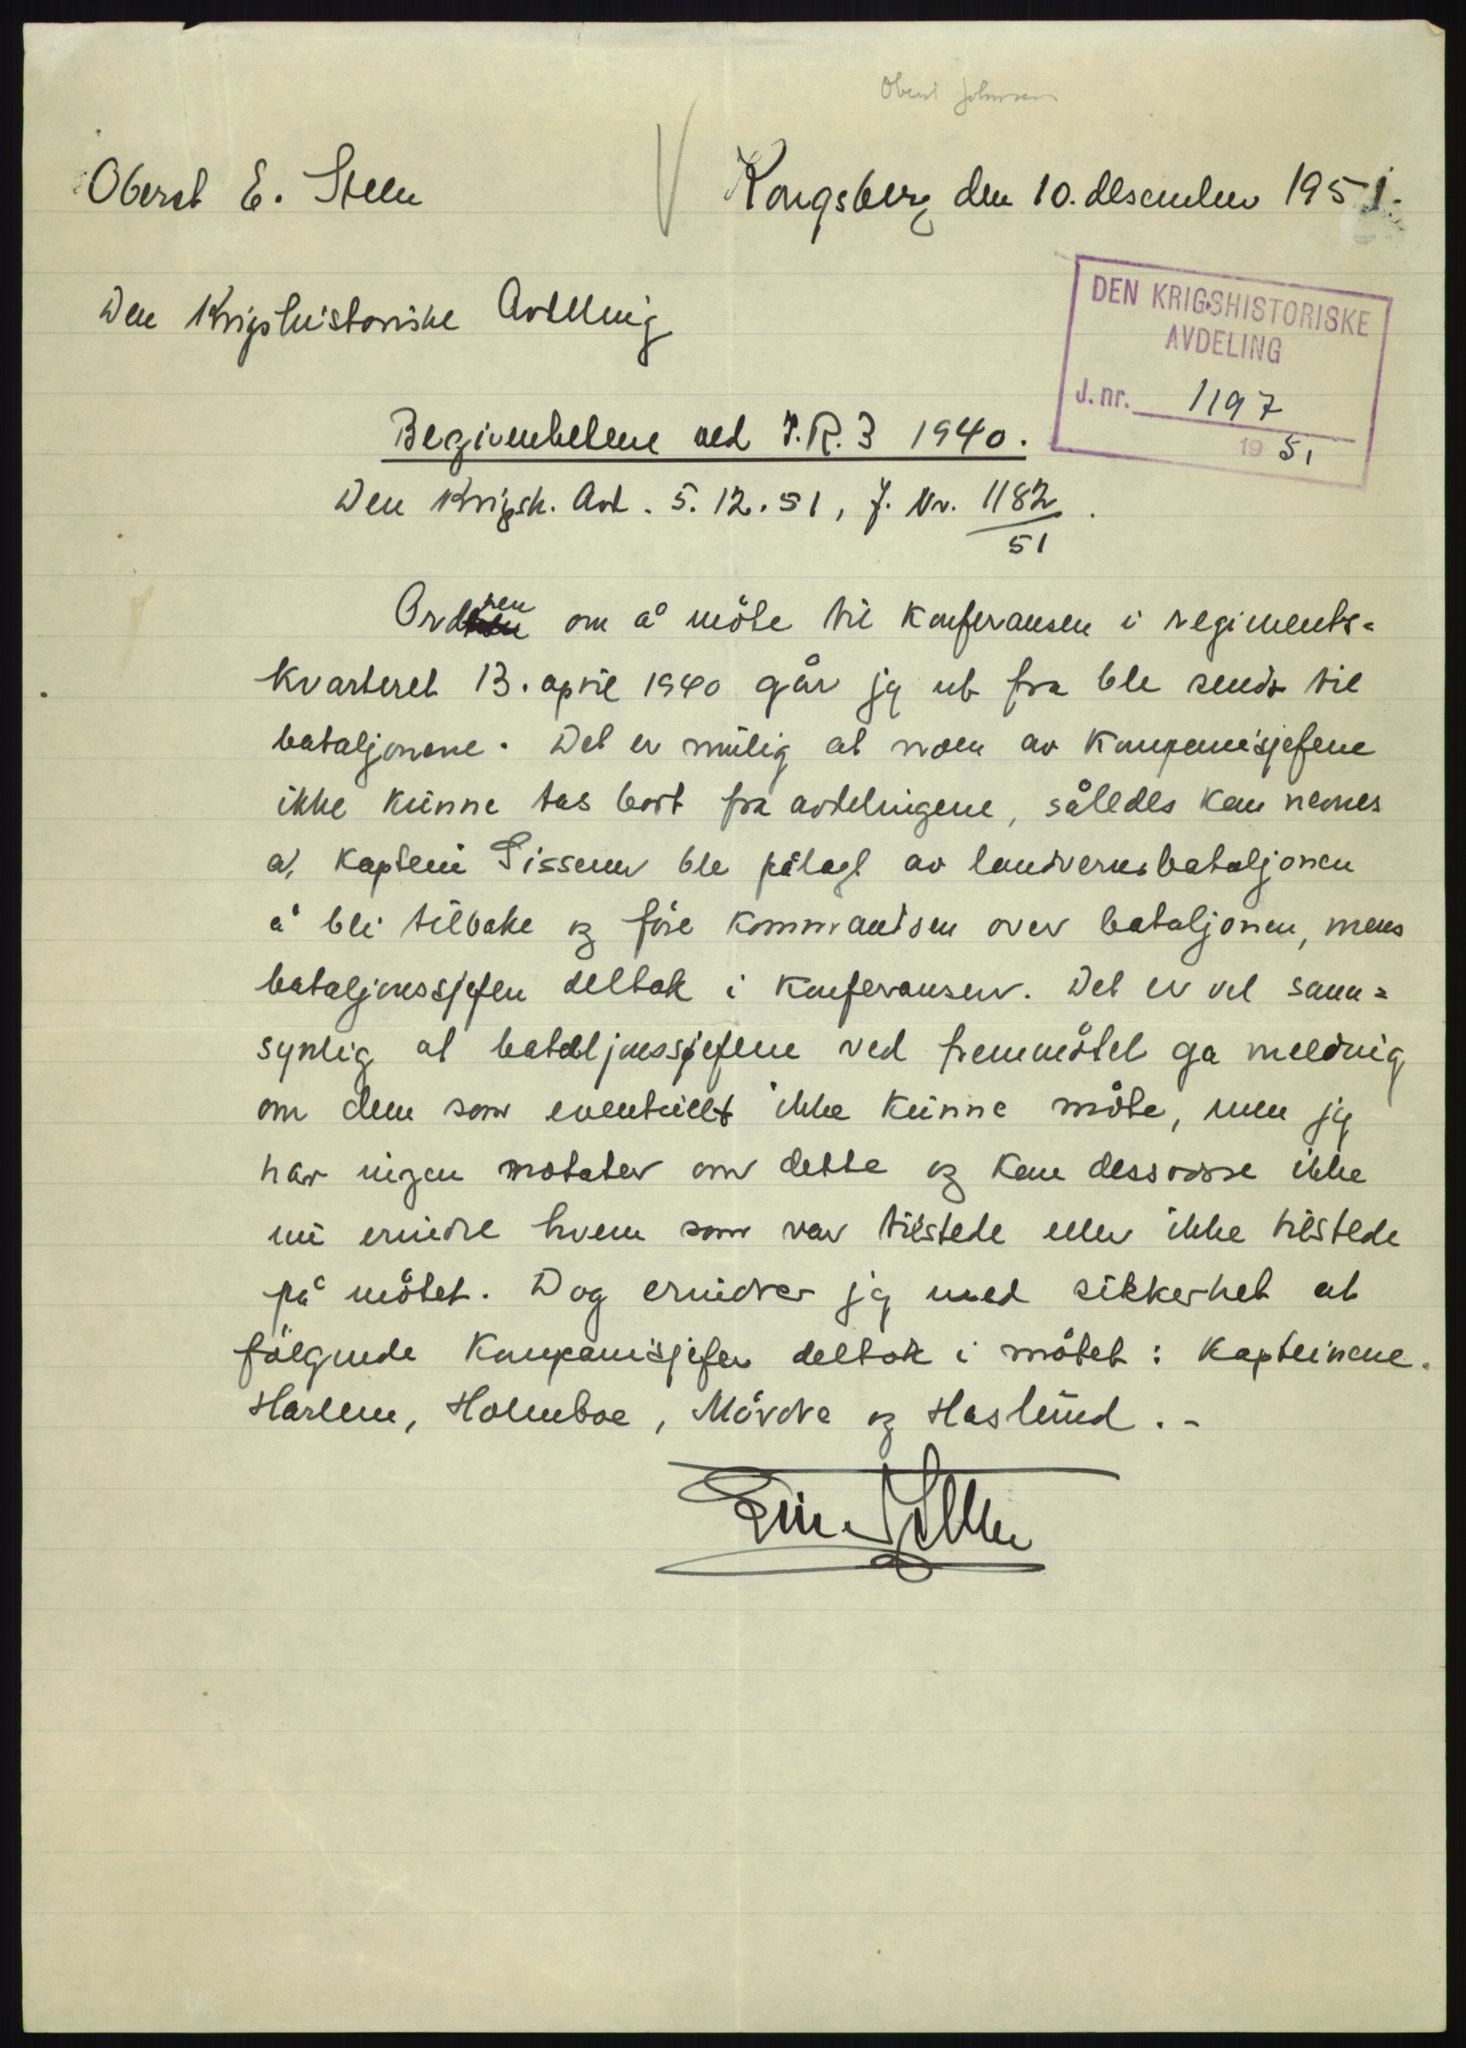 Oberst Johnsen
Oberst E. Steen
Kongsberg den 10. desember 1951.
Den Krigshistoriske Avdeling
DEN KRIGSHISTORISKE
AVDELING
J. nr. 1197
19 51
Begivenhetene ved I.R. 3 1940.
Den Krigsh. Avd. 5.12.51, J. Nr. 1182/51.
Ordren om å möte til konferansen i regiments=
kvarteret 13. april 1940 går jeg ut fra ble sendt til
bataljonene. Det er mulig at noen av kompanisjefene
ikke kunne tas bort fra avdelingene, således kan nevnes
at kaptein Sissener ble pålagt av landvernsbataljonen
å bli tilbake og före kommandoen over bataljonen, mens
bataljonssjefen deltok i konferansen. Det er vel sann=
synlig at bataljonssjefene ved fremmötet ga melding
om dem som eventuellt ikke kunne möte, men jeg
har ingen notater om dette og kan dessverre ikke
nu erindre hvem som var tilstede eller ikke tilstede
på mötet. Dog erindrer jeg med sikkerhet at
fölgende kompanisjefer deltok i mötet: kapteinene
Harlem, Holmboe, Mördre og Haslund. -
Einar Steen